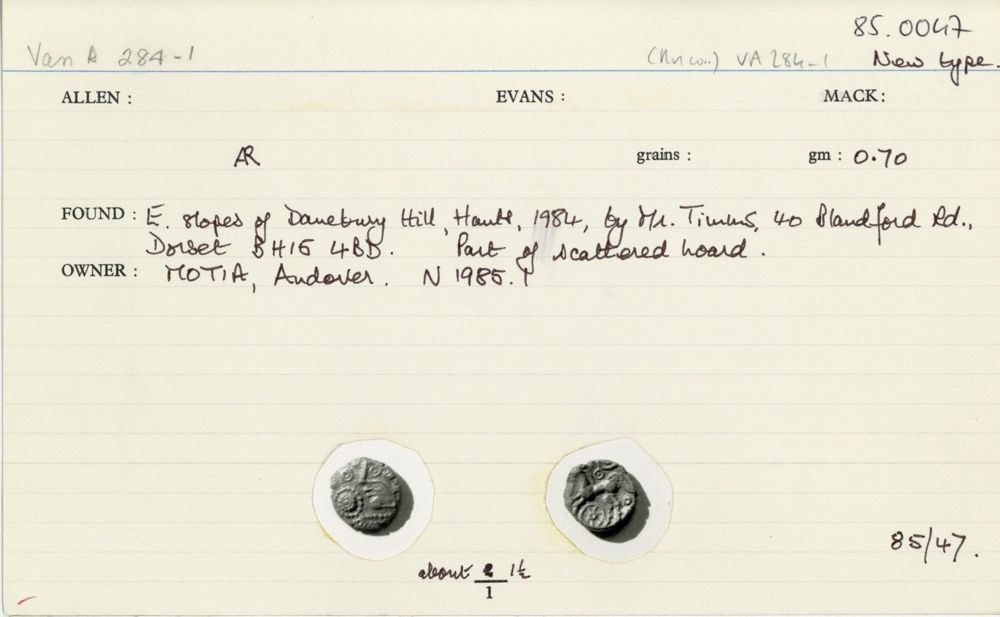 85.0047
Van A 284-1 VA 284-1 New type.
ALLEN : EVANS : MACK:
AR grains : gm : 0.70
FOUND : E. slopes of Danebury Hill, Hants, 1984, by Mr. Timms, 40 Blandford Rd.,
Dorset BH15 4BD. Part of scattered hoard.
OWNER : MOTIA, Andover. N 1985.1
85/47.
about 1½
1